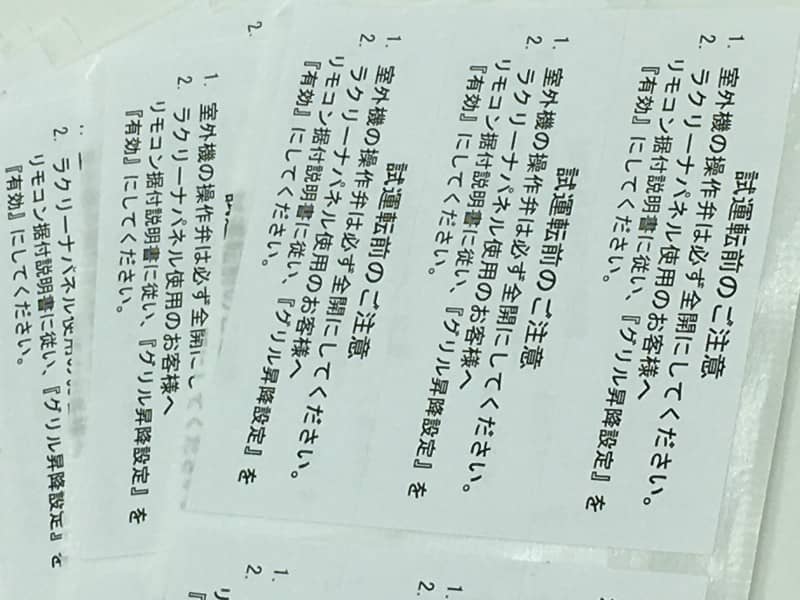 試運転前のご注意
1. 室外機の操作弁は必ず全開にしてください。
2. ラクリーナパネル使用のお客様へ
リモコン据付説明書に従い、『グリル昇降設定』を
『有効』にしてください。
試運転前のご注意
1. 室外機の操作弁は必ず全開にしてください。
2. ラクリーナパネル使用のお客様へ
リモコン据付説明書に従い、『グリル昇降設定』を
『有効』にしてください。
試運転前のご注意
1. 室外機の操作弁は必ず全開にしてください。
2. ラクリーナパネル使用のお客様へ
リモコン据付説明書に従い、『グリル昇降設定』を
『有効』にしてください。
2.
1. 室外機の操作弁は必ず全開にしてくださ
2. ラクリーナパネル使用のお客様へ
リモコン据付説明書に従い、『グリル昇降設定』を
『有効』にしてください。
2. ラクリーナパネル使用の
リモコン据付説明書に従い、『グリル昇降設定』を
『有効』にしてください。
1.
2.
1.
2.